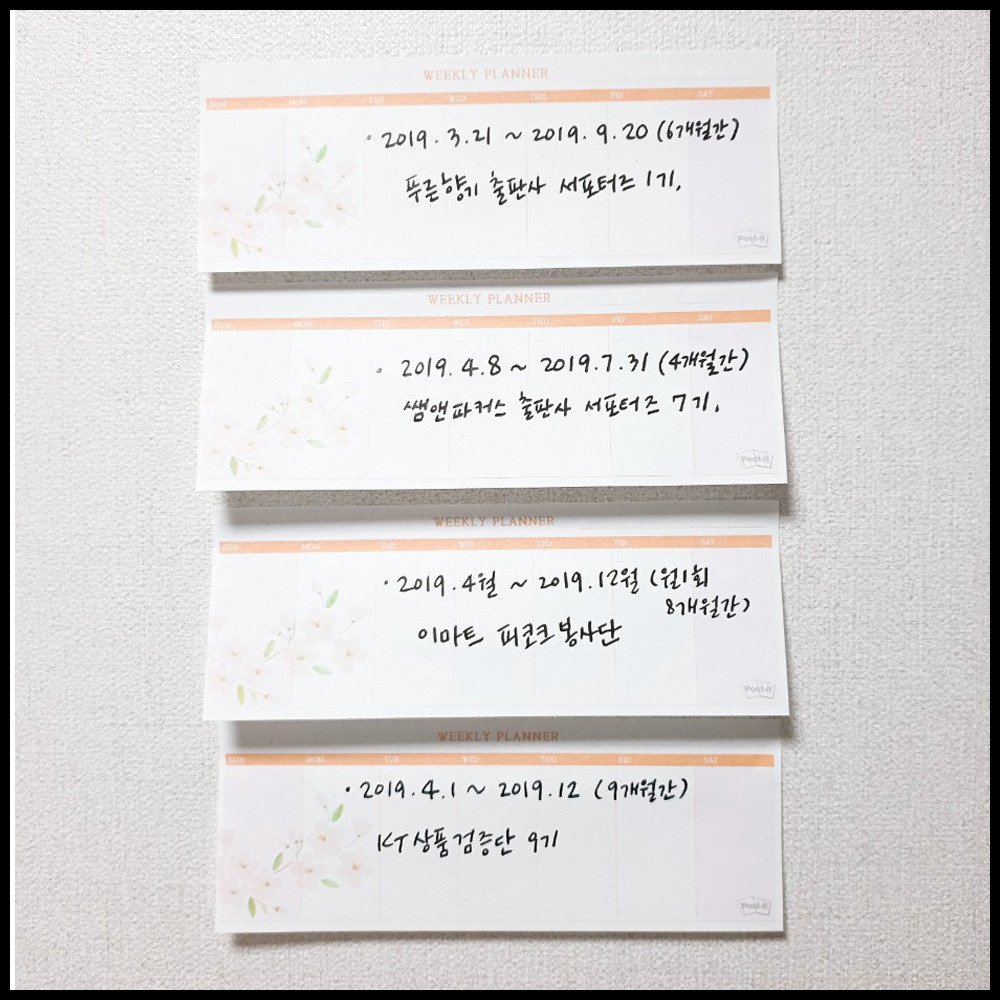 WEEKLY PLANNER
SUN MON TUE WED THU FRI SAT
• 2019. 3. 21 ~ 2019. 9. 20 (6개월간)
푸른향기 출판사 서포터즈 1기.
Post-it
WEEKLY PLANNER
SUN MON TUE WED THU FRI SAT
• 2019. 4. 8 ~ 2019. 7. 31 (4개월간)
쌤앤파커스 출판사 서포터즈 7기.
Post-it
WEEKLY PLANNER
SUN MON TUE WED THU FRI SAT
• 2019. 4월 ~ 2019. 12월 (월1회
8개월간)
이마트 피코크 봉사단
Post-it
WEEKLY PLANNER
SUN MON TUE WED THU FRI SAT
• 2019. 4. 1 ~ 2019. 12 (9개월간)
KT상품검증단 9기
Post-it